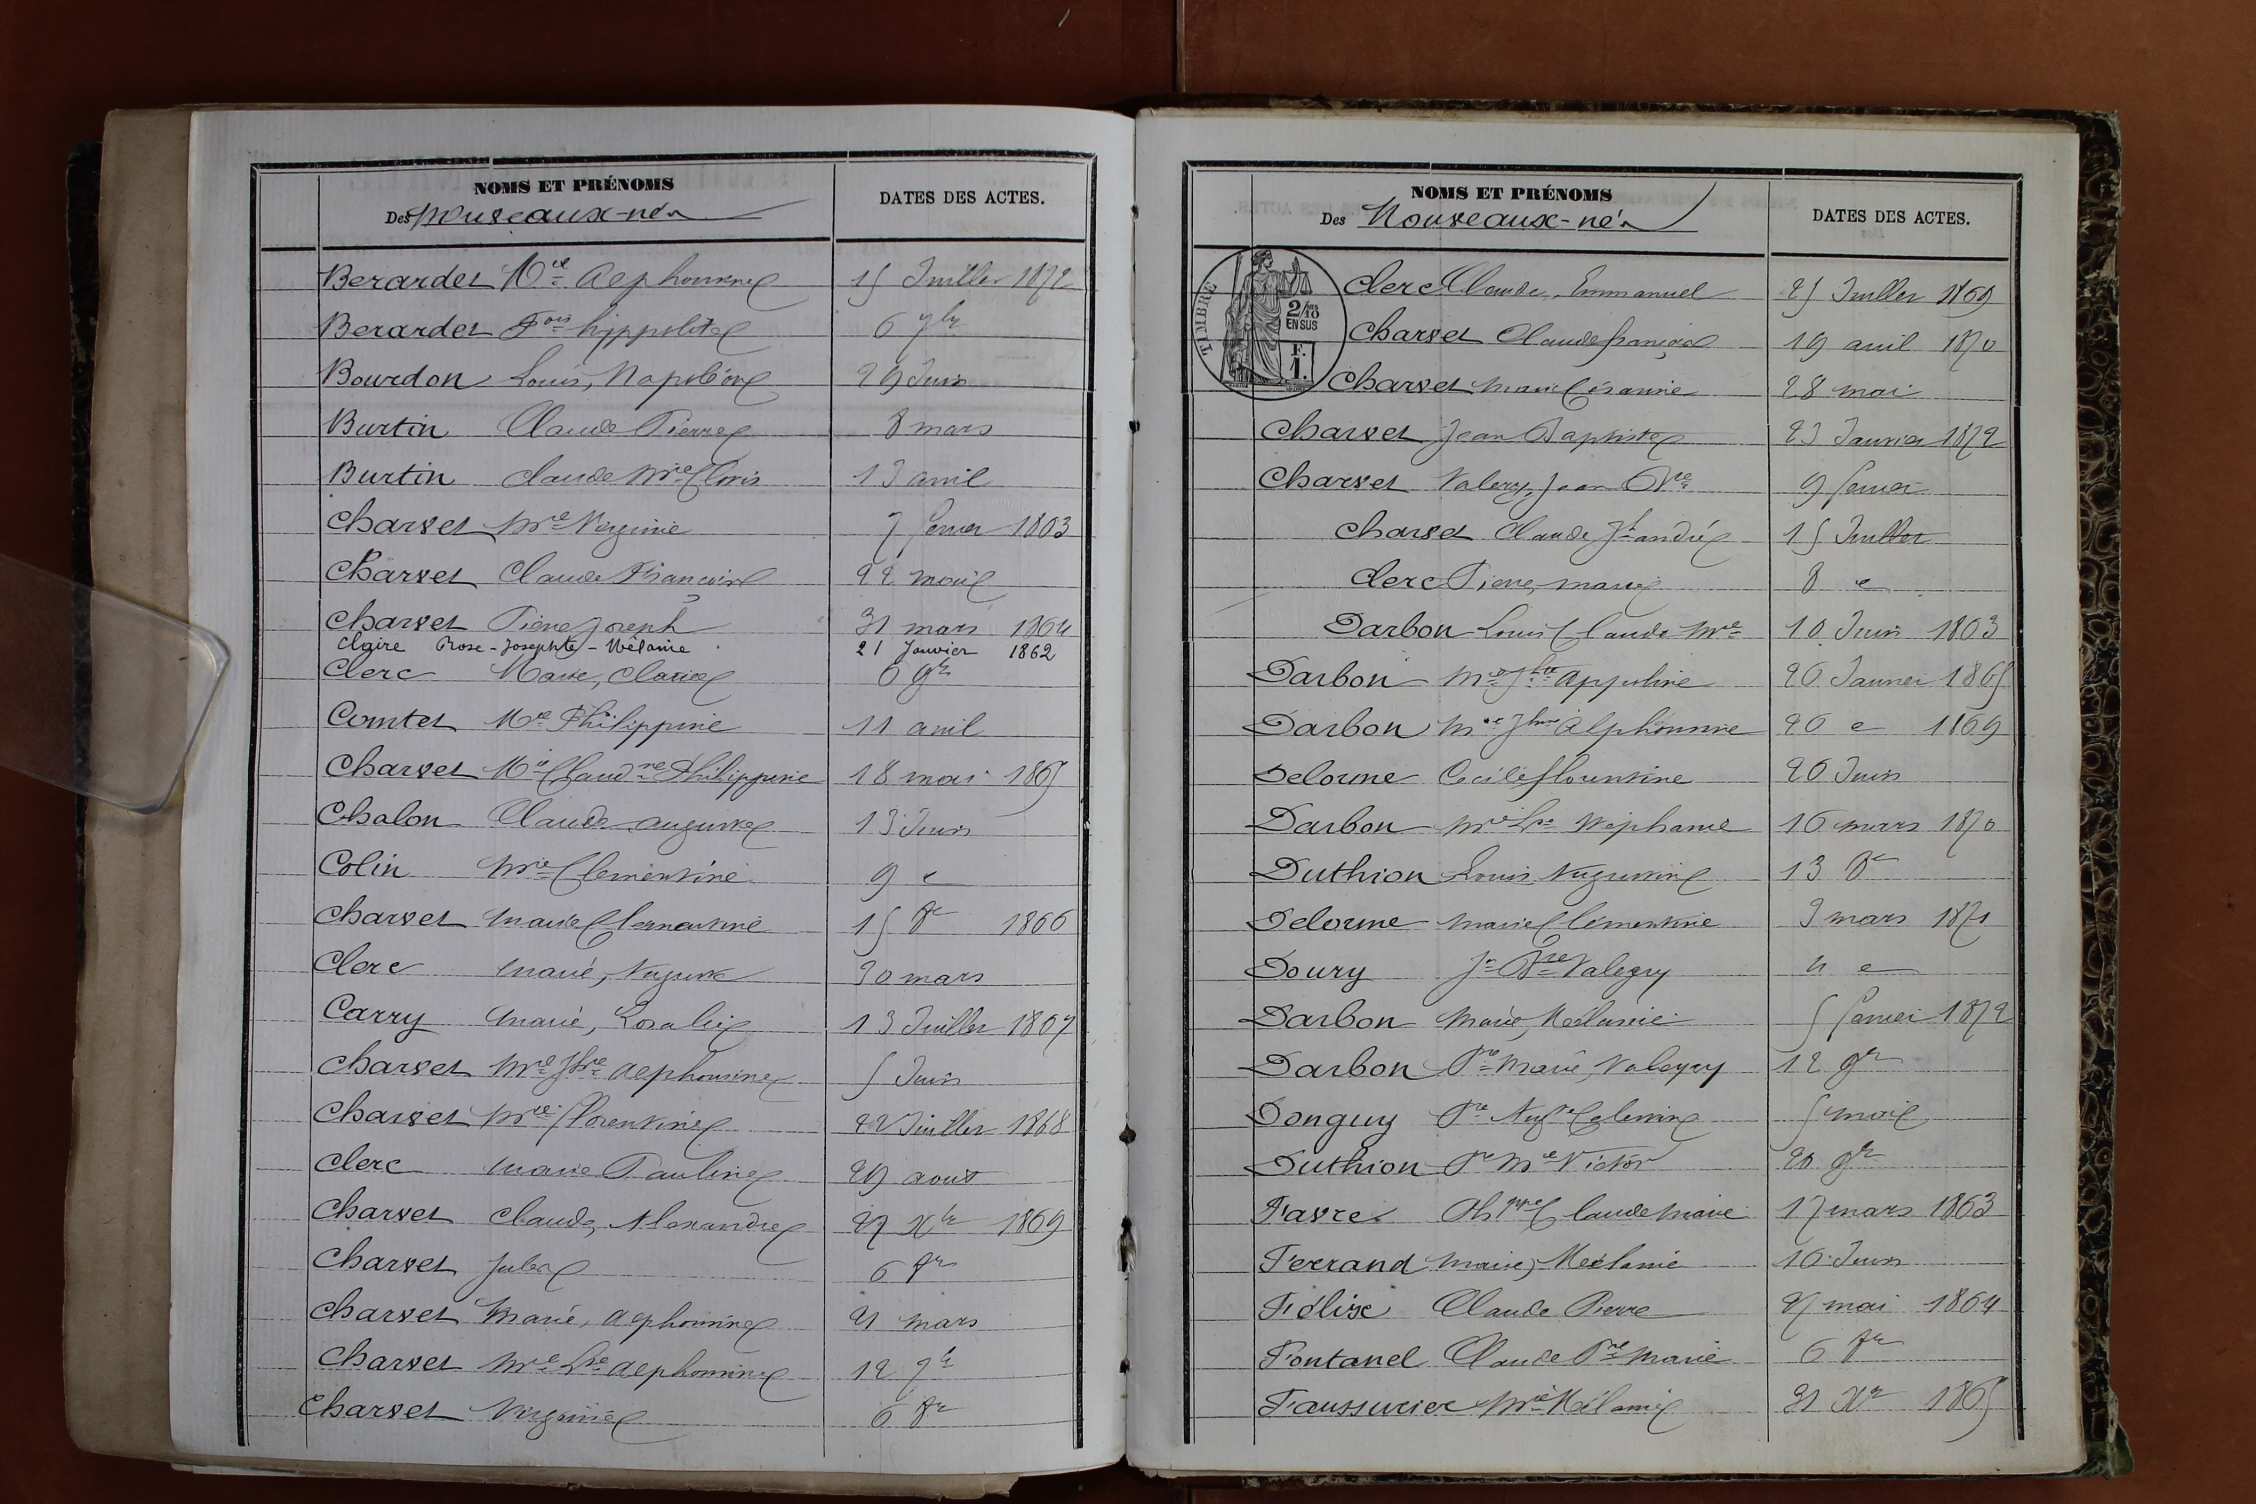 NOMS ET PRÉNOMS
Des Nouveaux-nés
DATES DES ACTES.
Berardet Mie Alphonsine 15 Juillet 1872
Berardet Fois hippolite 6 7bre
Bourdon Louis, Napoléon 29 Juin
Burtin Claude Pierre 8 mars
Burtin Claude Mie Clovis 13 avril
Charvet Mie Virginie 7 fevrier 1863
Charvet Claude François 22 mai
Charvet Pierre Joseph 31 mars 1864
Claire Rose-Josephte-Mélanie 21 Janvier 1862
Clerc Marie, Clarice 6 9bre
Comtet Mie Philippine 11 avril
Charvet Mie Claudne Philippine 18 mai 1865
Chalon Claude auguste 13 Juin
Colin Mie Clementine 9 e
Charvet Marie Clementine 15 8re 1866
Clerc Marie, Auguste 30 mars
Carry Marie, Rosalie 13 Juillet 1867
Charvet Mie Jhte Alphonsine 5 Juin
Charvet Mie Florentine 22 Juillet 1868
Clerc Marie Pauline 29 aout
Charvet Claude, Alexandre 27 Xbre 1869
Charvet Jules 6 8re
Charvet Marie, Alphonsine 21 mars
Charvet Mie Lse Alphonsine 12 7bre
Charvet Virginie 6 8re
NOMS ET PRÉNOMS
Des Nouveaux-nés
DATES DES ACTES.
TIMBRE
2/10
EN SUS
F.
1.
Clerc Claude, Emmanuel 25 Juillet 1869
Charvet Claude françois 19 avril 1870
Charvet Marie Césarine 28 mai
Charvet Jean Baptiste 23 Janvier 1872
Charvet Valery, Jean 9 fevrier
Charvet Claude Jh andré 15 Juillet
Clerc Pierre, marie 8 e
Darbon Louis Claude Mie 10 Juin 1863
Darbon Mie Jhte Appoline 26 Janvier 1865
Darbon Mie Jhine Alphonsine 26 e 1869
Delorme Cecile florentine 26 Juin
Darbon Mie Lse Stephanie 16 mars 1870
Duthion Louis Augustin 13 8re
Delorme Marie Clémentine 3 mars 1871
Doury Jn Bte Valery 4 e
Darbon Marie Mélanie 5 fevrier 1872
Darbon Pre Marie, Valery 12 9bre
Donguy Pre Célestin 5 mai
Duthion Pre Mie Victor 20 9bre
Favre Phppe Claude Marie 17 mars 1863
Ferrand Marie, Mélanie 16 Juin
Félix Claude Pierre 27 mai 1864
Fontanel Claude Pre Marie 6 8re
Faussurier Mie Mélanie 31 Xbre 1865